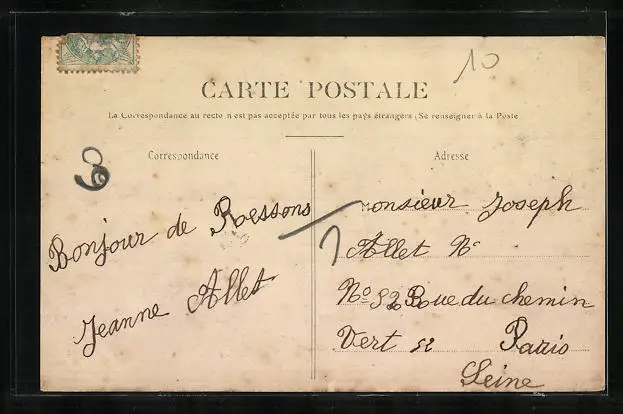 10
CARTE POSTALE
La Correspondance au recto n'est pas acceptée par tous les pays étrangers (Se renseigner à la Poste
Correspondance
Bonjour de Ressons
Jeanne Allet
Adresse
Monsieur Joseph
Allet No
No 52 Rue du chemin
Vert 52 Paris
Seine